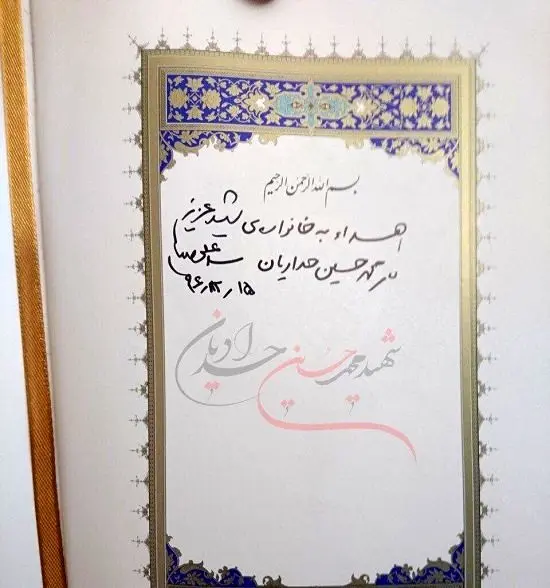 بسم الله الرحمن الرحیم
اهداء به خانواده‌ی شهید عزیز
محمدحسین حدادیان سیدعلی خامنه‌ای
۹۶٫۱۲٫۱۵
شهید محمد حسین حدادیان